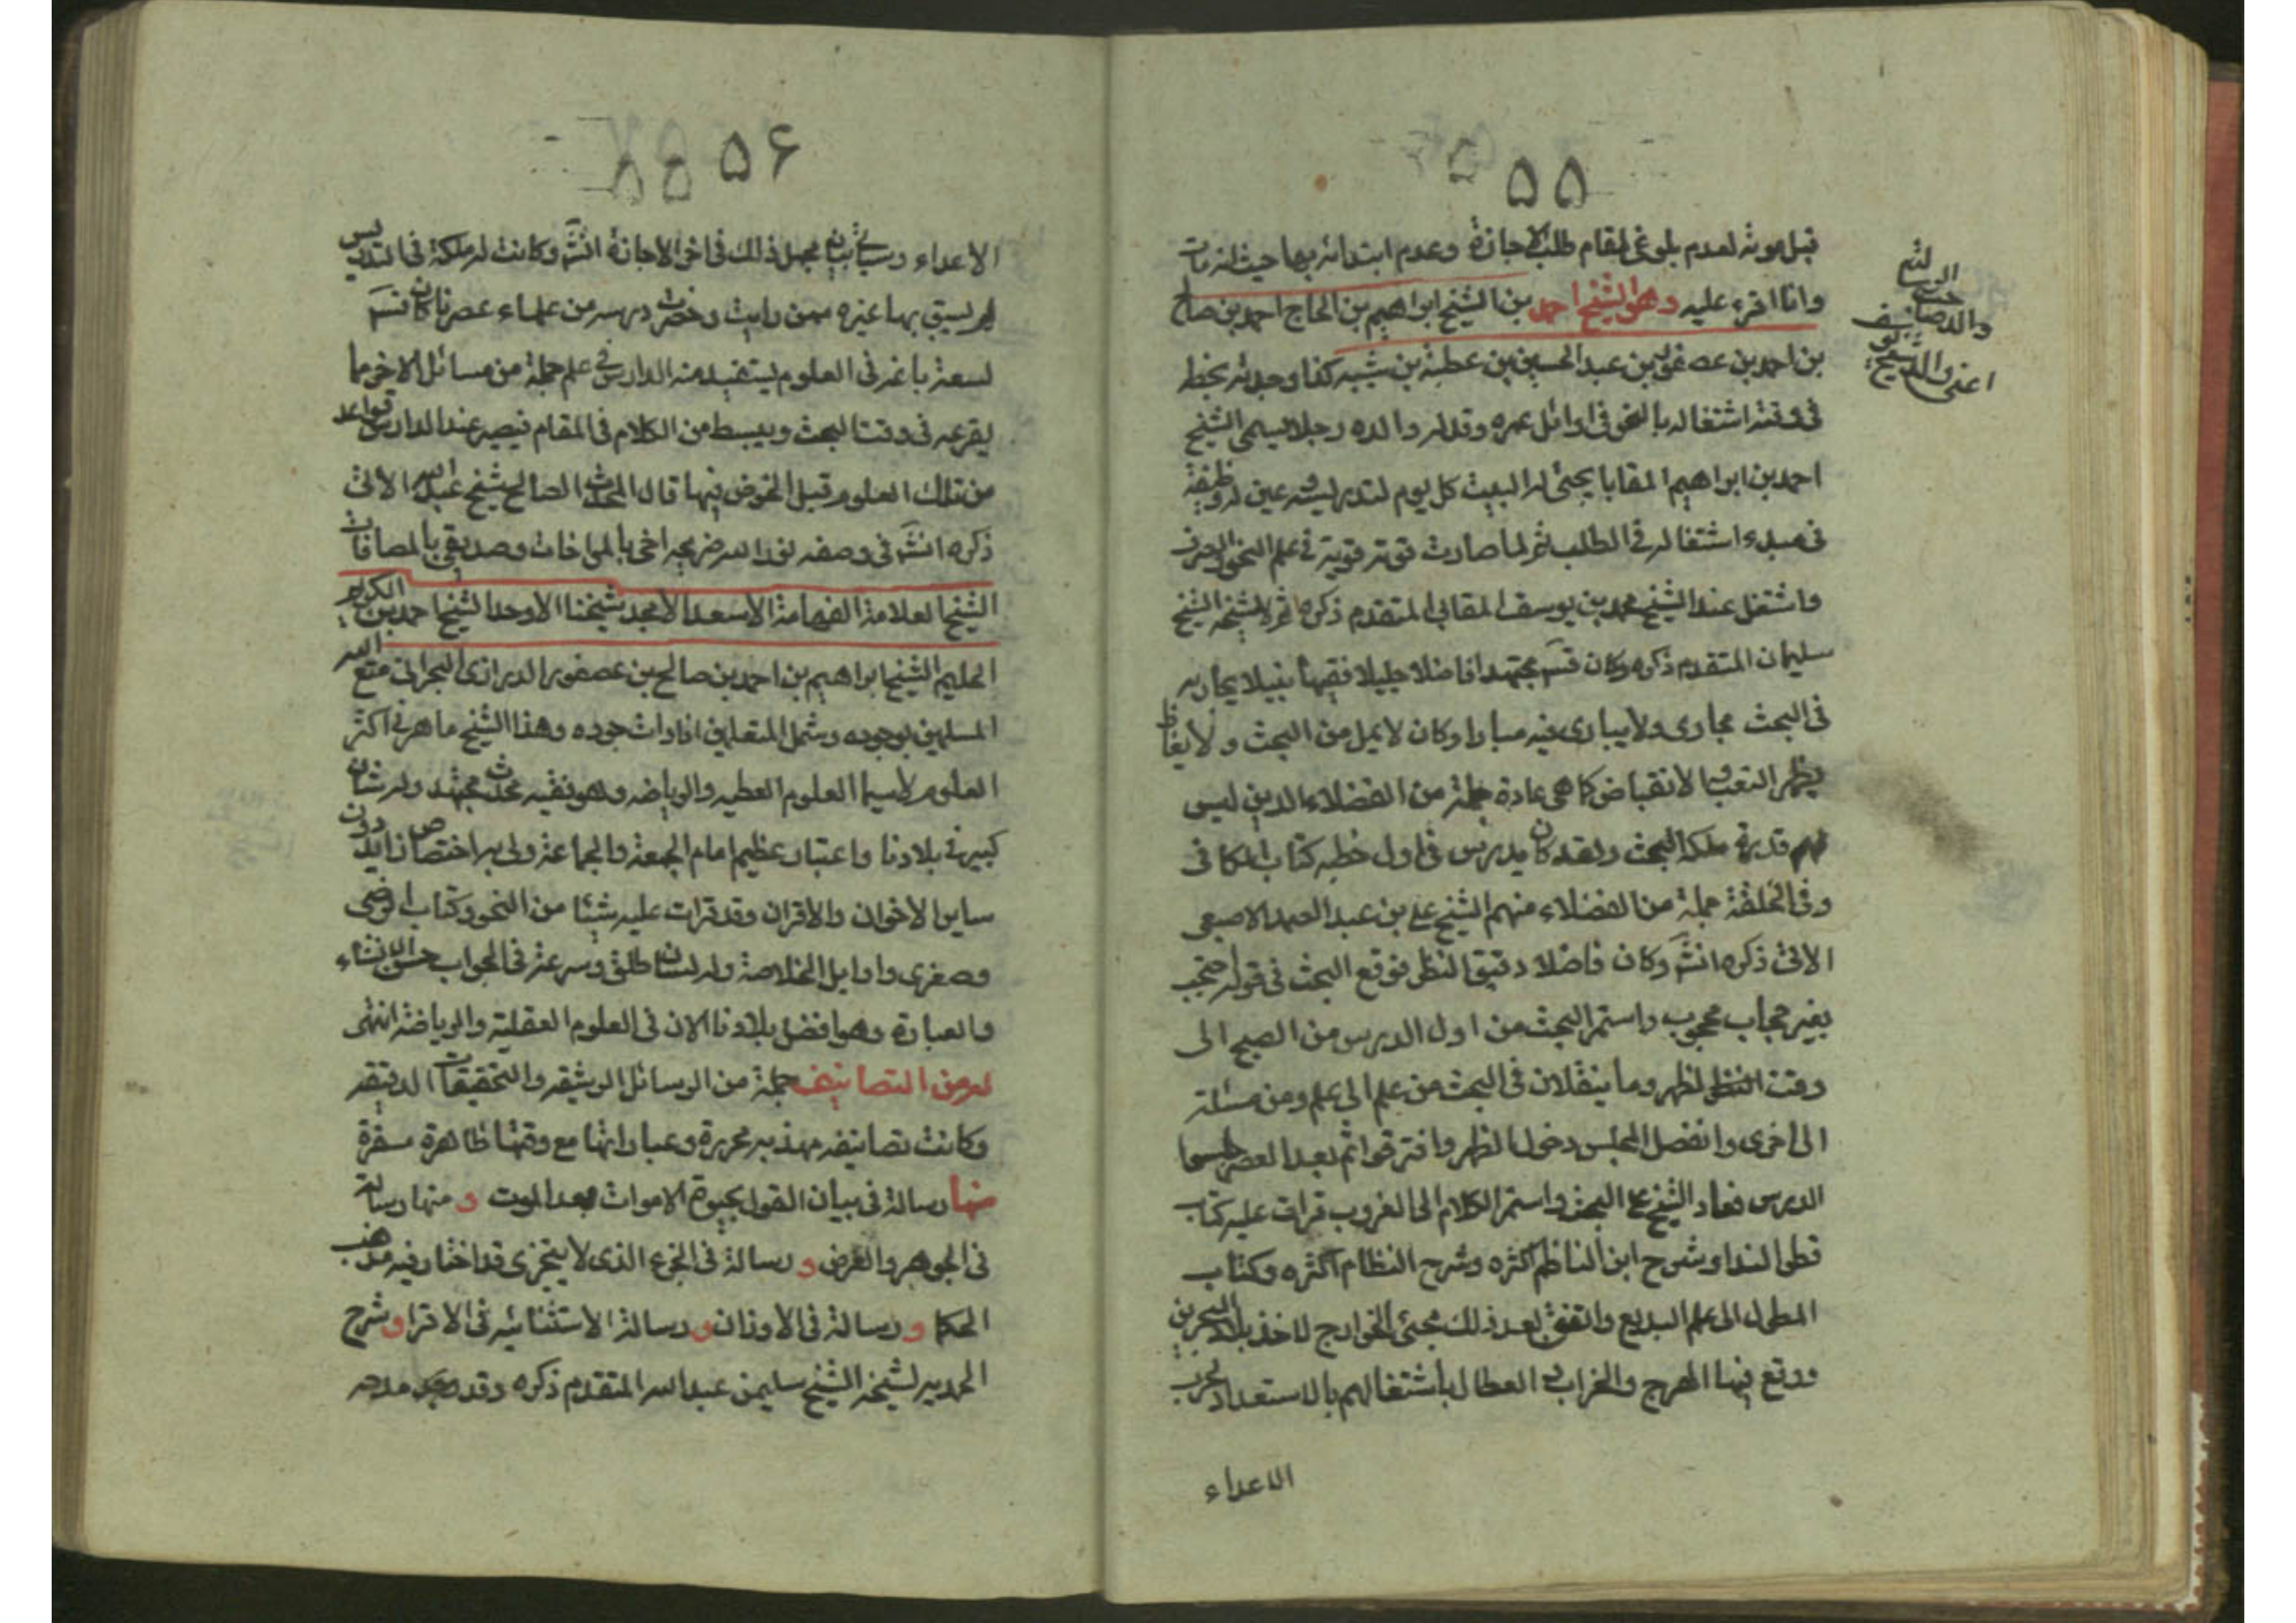 ٥٥
قبل موته لعدم بلوغي لمقام طلب الاجازة وعدم ابتدائه بها حيث انه مات
وانا اقرء عليه وهو الشيخ احمد بن الشيخ ابراهيم بن الحاج احمد بن صالح
بن احمد بن عصفور بن عبد الحسين بن عطية بن شيبه كذا وجدته بخطه
في وقته اشتغاله بالنحو في اوائل عمره وقد له والده رجلا يسمى الشيخ
احمد بن ابراهيم المقابا يجئ له البيت كل يوم لتدريسه وعين له وظيفة
في مبدء اشتغاله في الطلب ثم لما صارت قوته قوية في علم النحو والصرف
واشتغل عند الشيخ محمد بن يوسف المقابي المتقدم ذكره ثم لشيخه الشيخ
سليمان المتقدم ذكره وكان قسَ مجتهدا فاضلا جليلا فقيها نبيلا يجاريه
في البحث مجاري ولا يباري فيه مبارا وكان لا يمل من البحث ولا يغتاظ
يظهر التعب والانقباض كما هي عادة جملة من الفضلاء الذين ليس
لهم قدرة ملكة البحث ولقد كان يدرس في اول خطبه كتاب الكافي
وفي الحلقة جملة من الفضلاء منهم الشيخ علي بن عبد الصمد الاصبعي
الاتي ذكره انشَ وكان فاضلا دقيق النظر فوقع البحث في قوله احتجب
بغير حجاب محجوب واستمر البحث من اول الدرس من الصبح الى
وقت الظهر وما ينقلان في البحث من علم الى علم ومن مسئلة
الى اخرى وانفصل المجلس دخول الظهر وافترقوا ثم بعد العصر جلسوا
الدرس فعاد الشيخ علي البحث واستمر الكلام الى الغروب قرات عليه كتاب
قطر الندا وشرح ابن الناظم اكثره وشرح النظام اكثره وكتاب
المطول الى علم البديع واتفق بعد ذلك مجئ الخوارج لاخذ بلاد البحرين
ووقع فيها الهرج والخراب والعطال باشتغالهم بالاستعداد لحرب
الاعداء
واللصانيف
اعني والد الشيخ
٥٦
الاعداء وسياتي بيان مجمل ذلك في اخر الاجازة انشَ وكانت له ملكة في التدريس
لم يسبق بها غيره ممن رايت وحضرت درسه من علماء عصرنا كان قسَ
لسعة باعه في العلوم يستفيد منه الدارس في علم جملة من مسائل الاخر مما
يقرعه في وقت البحث ويبسط من الكلام في المقام فيصير عند الدارس قواعد
من تلك العلوم قبل الخوض فيها قال المحدث الصالح شيخ عبد الله الاتي
ذكره انشَ في وصفه نور الله ضريحه اخي بالمواخات وصديقي بالمصافات
الشيخ العلامة الفهامة الاسعد الامجد شيخنا الاوحد الشيخ احمد بن الكريم
الحليم الشيخ ابراهيم بن احمد بن صالح بن عصفور الدرازي البحراني متع الله
المسلمين بوجوده وشمل المتعلمين افادات جوده وهذا الشيخ ماهر في اكثر
العلوم لا سيما العلوم العقليه والرياضه وهو فقيه محدث مجتهد وله شان
كبير في بلادنا واعتبار عظيم امام الجمعة والجماعة ولي به اختصاص زايد دون
ساير الاخوان والاقران وقد قرات عليه شيئا من النحو وكتاب الرضي
وصغرى واوايل الخلاصة وله لسان طلق وسرعة في الجواب حسن الانشاء
والعبارة وهو افضل بلادنا الان في العلوم العقلية والرياضة انتهى
له من التصانيف جملة من الرسائل الرشيقه والتحقيقات الدقيقه
وكانت تصانيفه مهذبه محررة وعباراتها مع دقتها ظاهرة مسفرة
منها رسالة في بيان القول بحيوة الاموات بعد الموت و منها رسالة
في الجوهر والعرض و رسالة في الجزء الذي لا يتجزى قد اختار فيه مذهب
الحكما و رسالة في الاوزان و رسالة الاستثنائيه في الاقرا و شرح
الحمديه لشيخه الشيخ سليمن عبد الله المتقدم ذكره وقد مدحه